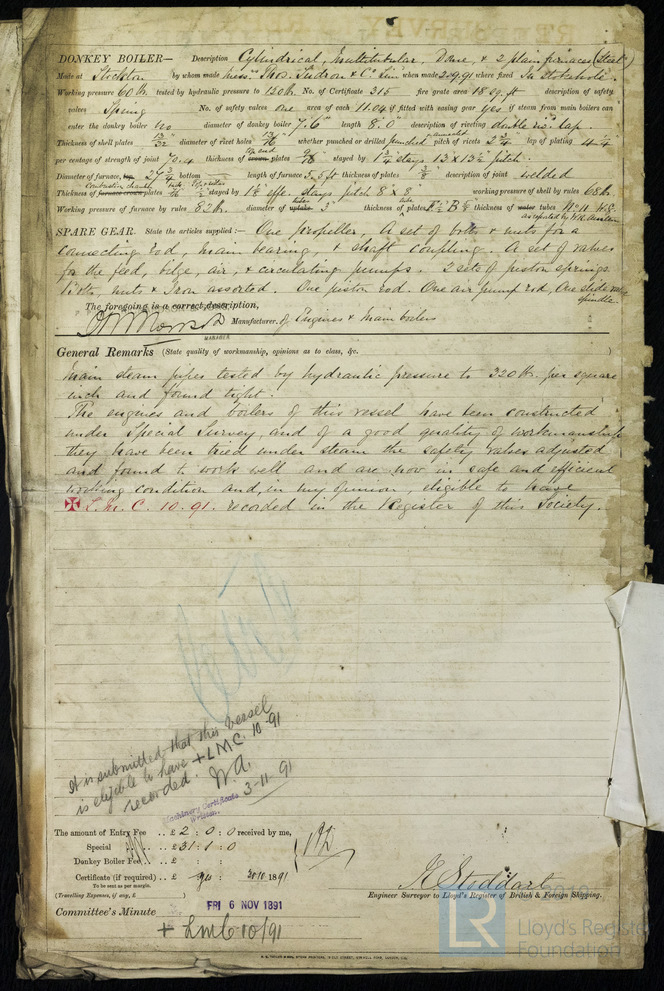 DONKEY BOILER— Description Cylindrical, Multitubular, Dome, & 2 plain furnaces (Steel)
Made at Stockton by whom made Mess.rs Thos. Sudron & Co. Lim when made 2.9.91 where fixed In stokehole
Working pressure 60 lb. tested by hydraulic pressure to 120 lb. No. of Certificate 315 fire grate area 18 sq. ft description of safety
valves Spring No. of safety valves one area of each 11.04 if fitted with easing gear yes if steam from main boilers can
enter the donkey boiler no diameter of donkey boiler 7'.6" length 8'.0" description of riveting double riv. lap.
Thickness of shell plates 13/32 diameter of rivet holes 13/16 whether punched or drilled punched pitch of rivets 2 3/4 lap of plating 4 1/4
per centage of strength of joint 70.4 thickness of plates 9/16 stayed by 1 3/4 stays 13 x 13 1/2 pitch.
Diameter of furnace, 27 3/4 bottom length of furnace 5.5 ft thickness of plates 3/8 description of joint welded
Thickness of combustion chamber plates stayed by 1 1/8 effe. stays pitch 8 x 8 working pressure of shell by rules 68 lb.
Working pressure of furnace by rules 82 lb. diameter of tubes 3" thickness of plates thickness of tubes No. 11 W.G.
SPARE GEAR. State the articles supplied:— One propeller, A set of bolts & nuts for a
connecting rod, main bearing, & shaft coupling. A set of valves
for the feed, bilge, air, & circulating pumps. 2 sets of piston springs
Bolts, nuts & Iron assorted. One piston rod. One air pump rod One slide valve
spindle
The foregoing is a correct description,
Manufacturer. of Engines & Main boilers
MANAGER
General Remarks (State quality of workmanship, opinions as to class, &c. )
Main steam pipes tested by hydraulic pressure to 320 lb. per square
inch and found tight.
The engines and boilers of this vessel have been constructed
under Special Survey, and of a good quality of workmanship
they have been tried under steam the safety valves adjusted
and found to work well and are now in safe and efficient
working condition and, in my opinion, eligible to have
✠ L.M.C. 10.91. recorded in the Register of this Society.
It is submitted that this vessel
is eligible to have + LMC. 10-91
recorded. W.A.
3-11-91
Machinery Certificate
Written.
The amount of Entry Fee .. £ 2 : 0 : 0 received by me,
Special .. £ 31 : 1 : 0
Donkey Boiler Fee .. £ : :
Certificate (if required) .. £ : 30/10 1891
To be sent as per margin.
(Travelling Expenses, if any, £ )
Stoddart
Engineer Surveyor to Lloyd's Register of British & Foreign Shipping.
Committee's Minute
FRI 6 NOV 1891
+ Lmc 10/91
LR
Lloyd's Register
Foundation